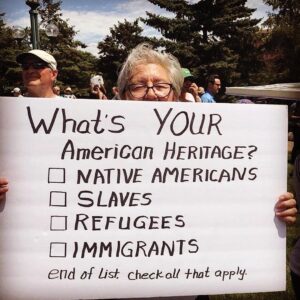 What's YOUR
American HERITAGE?
NATIVE AMERICANS
SLAVES
REFUGEES
IMMIGRANTS
end of List check all that apply.